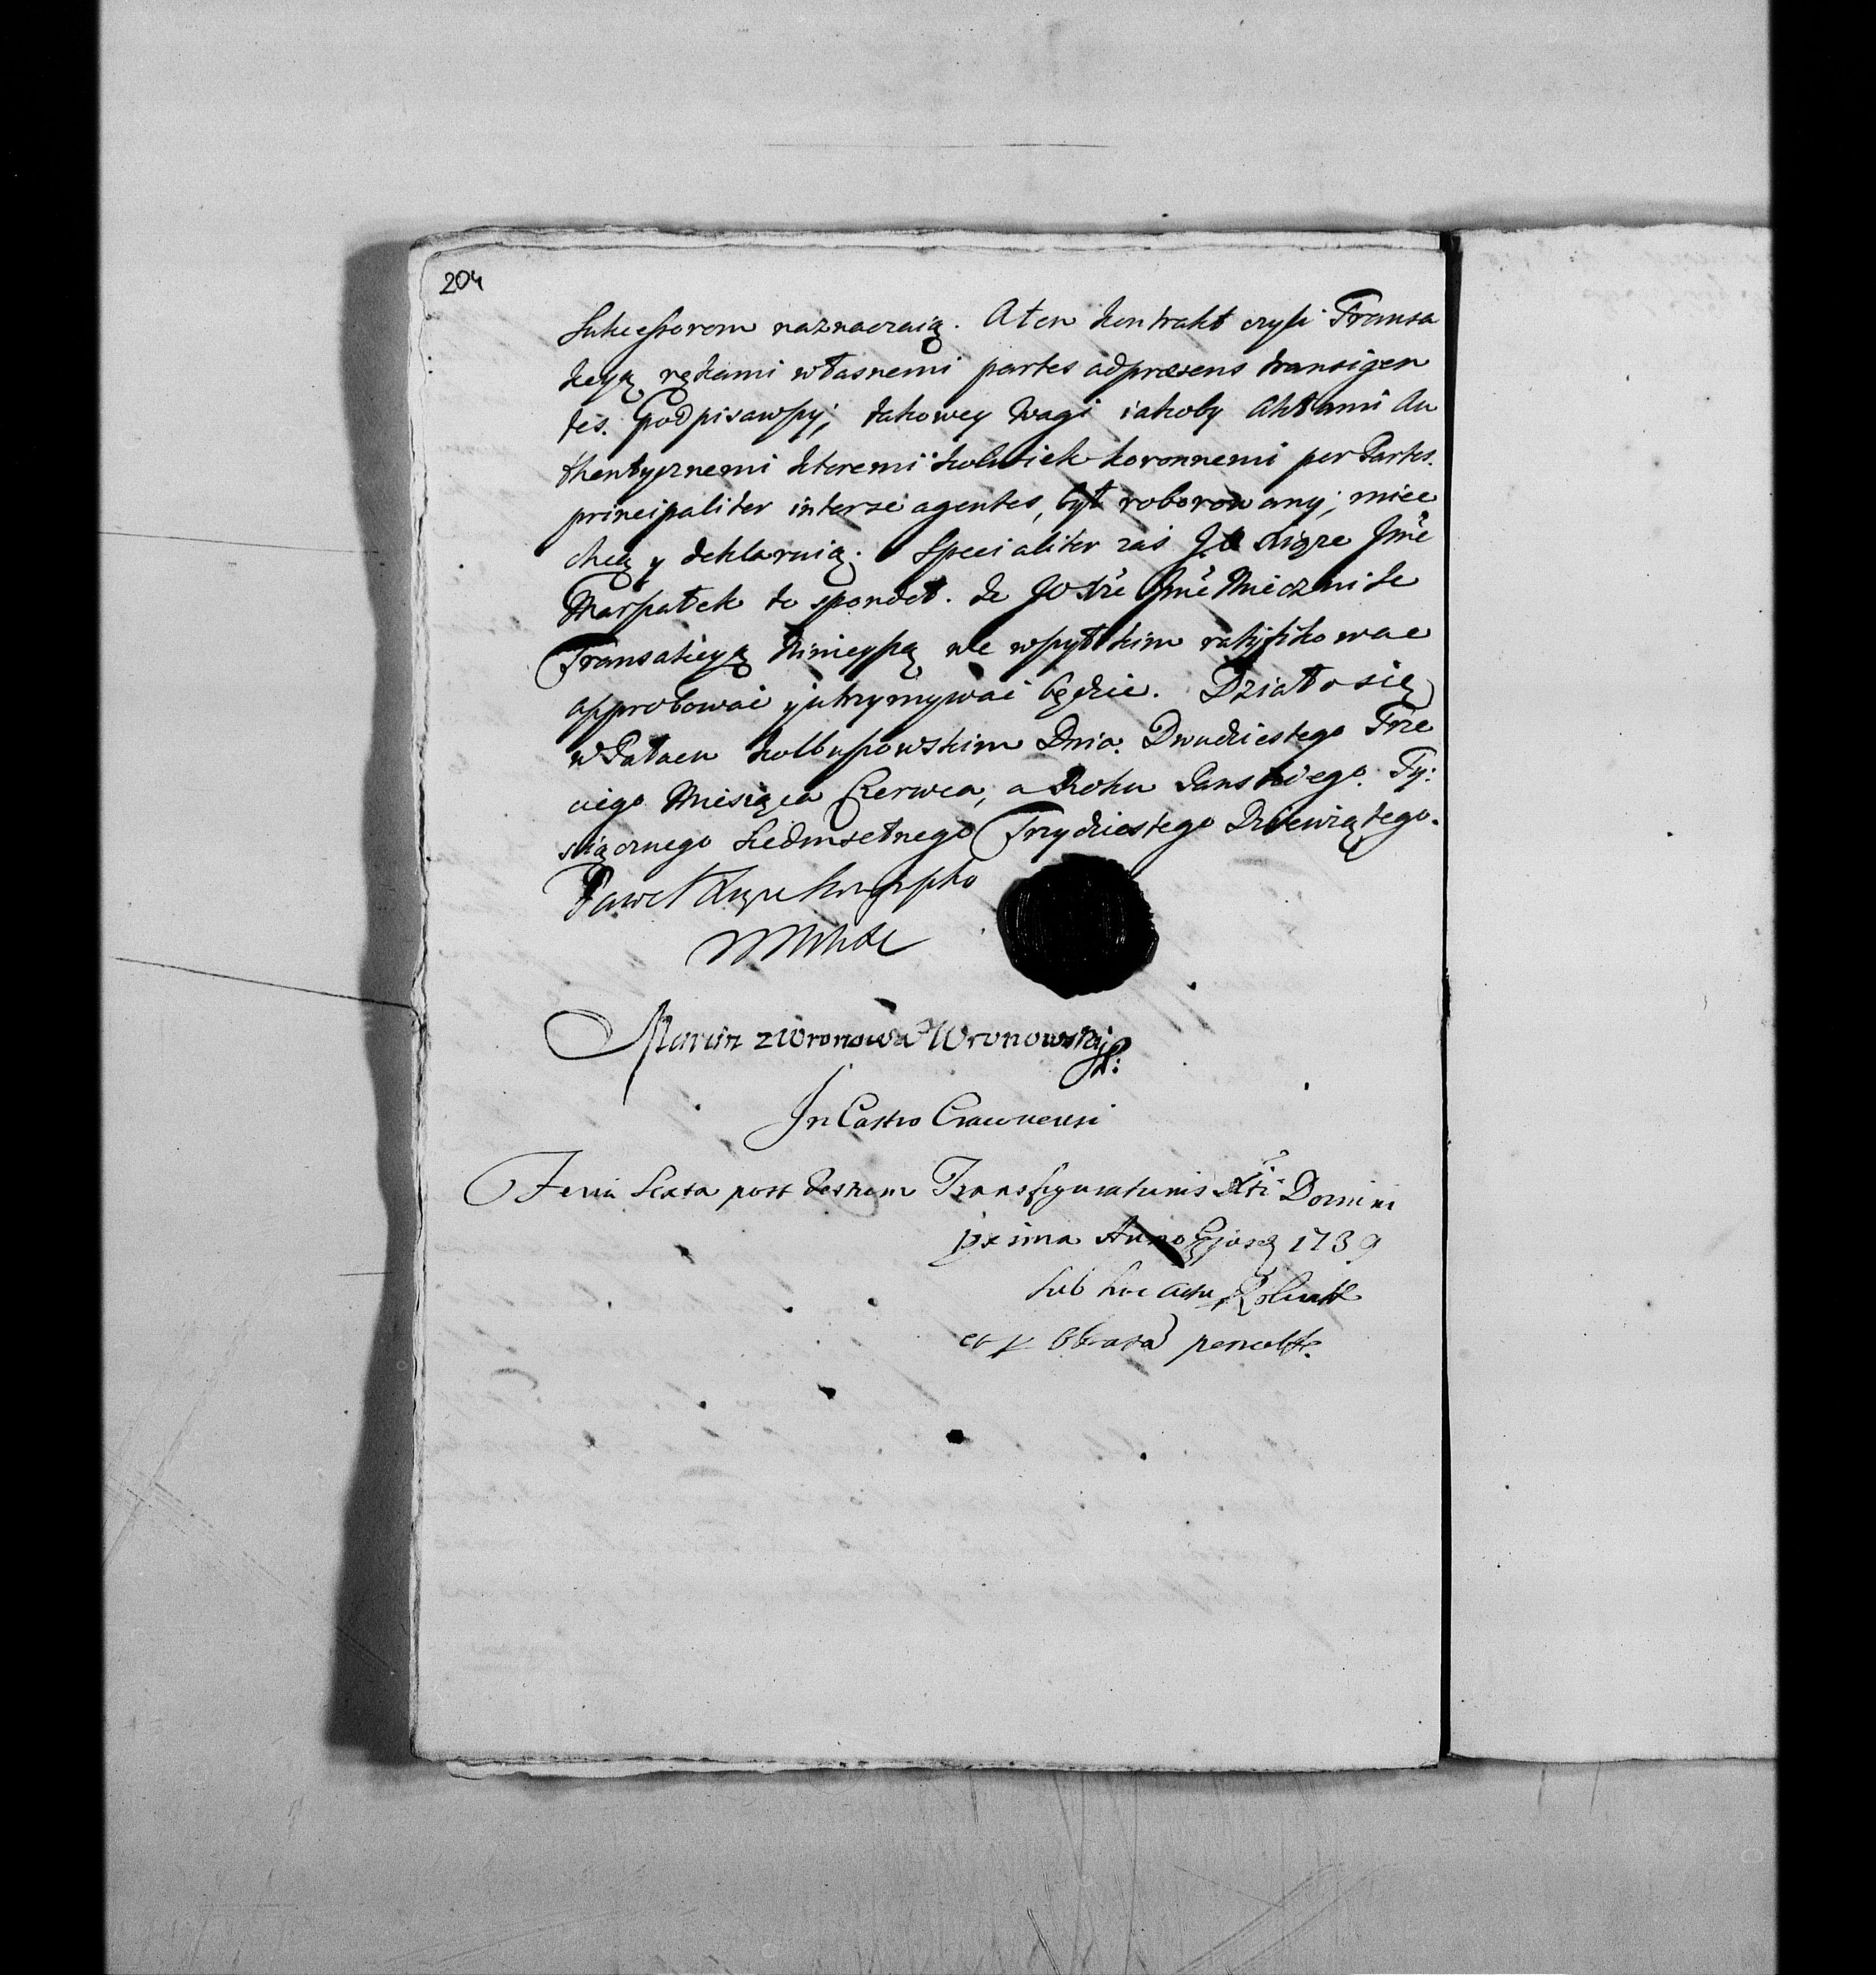 204
Sukcessorom naznaczaią. A ten kontrakt czyli Transa
kcyą rękami własnemi partes ad præsens transigen
tes. podpisawszy, takowey wagi iakoby Aktami Au
thentycznemi ktoremi kolwiek koronnemi per Partes.
principaliter inter se agentes, był roborowany; miec
chcą y deklaruią. Specialiter zas JO Xiąze Jmć
Marszałek to spondet. że JO Xże Jmć Miecznik te
Transakcyą ninieyszą we wszytkim ratyfikowac
approbować y utrzymywać będzie. Działo się
w Pałacu Kolbuszowskim Dnia. Dwudziestego Trze
ciego Miesiąca Czerwca, a Roku Panskiego. Ty:
siącznego Siedmsetnego Trzydziestego Dziewiątego.
Paweł Xże Sanguszko
Marcin z Wronowa Wronowski
In Castro Cracoviensi
Feria Sexta post Festum Transfigurationis Xti Domini
pxima Anno Ejusq 1739
Sub hoc actu
et p Oblatã